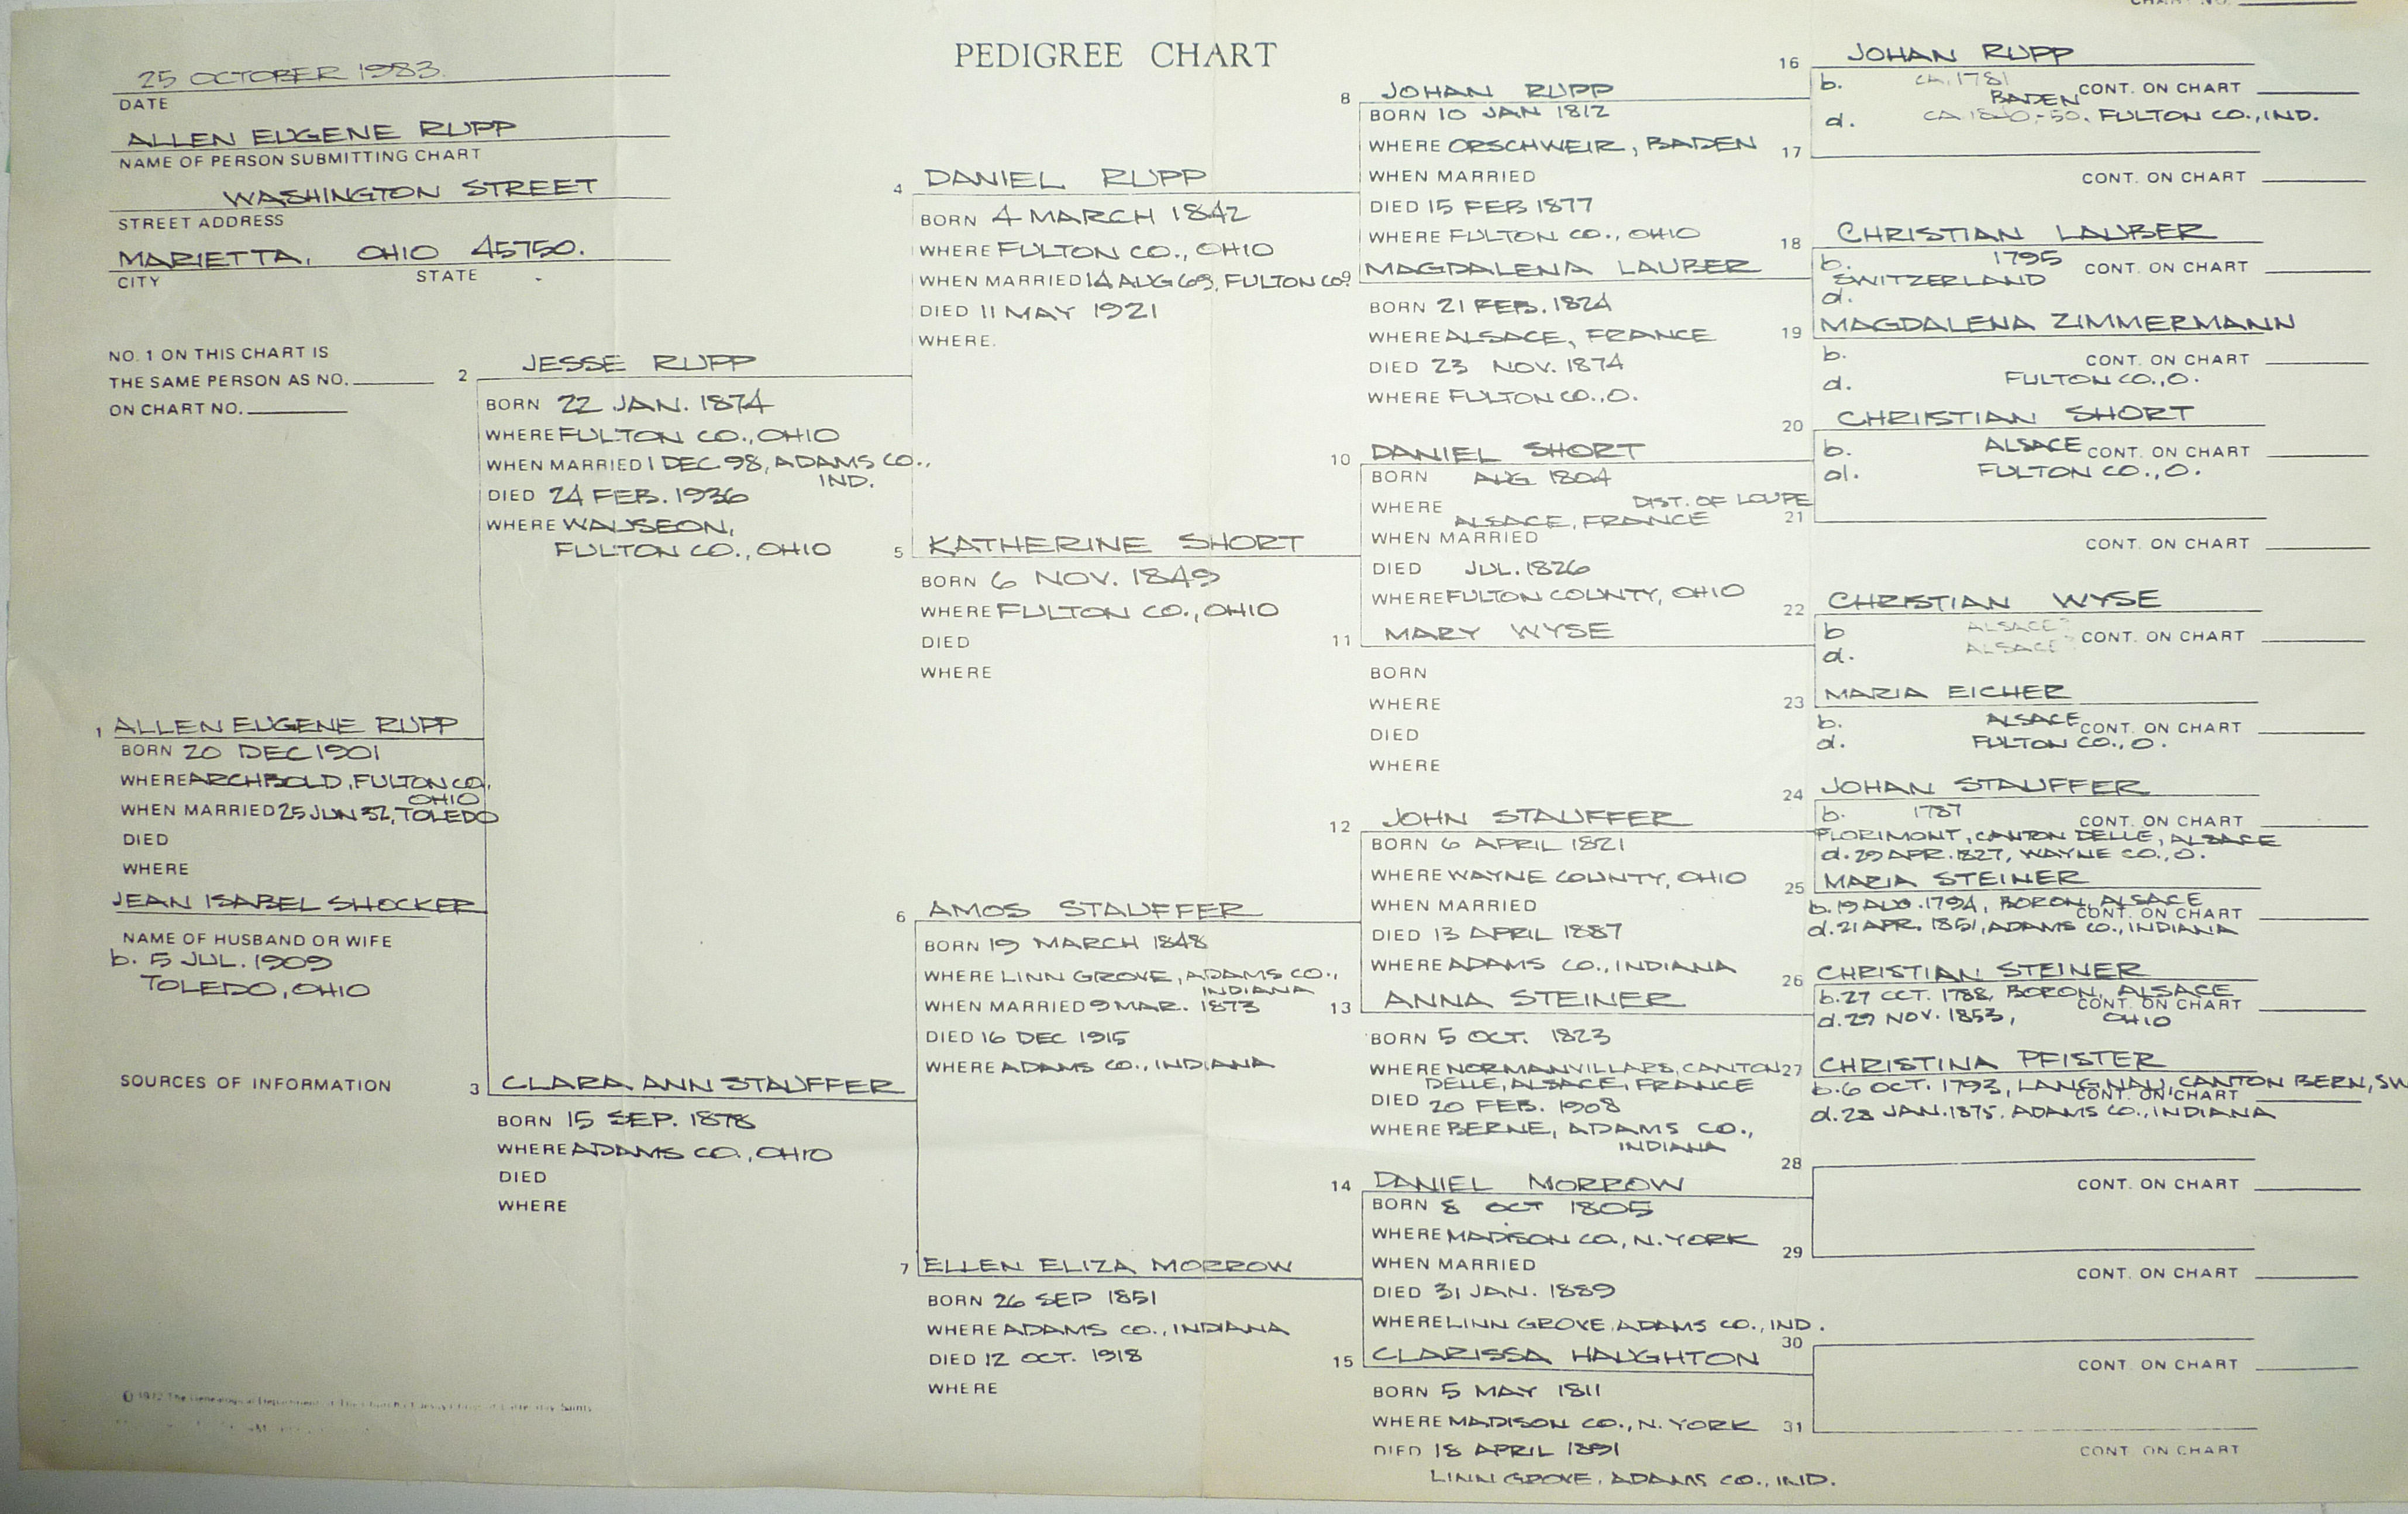 PEDIGREE CHART
25 OCTOBER 1983.
DATE
ALLEN EUGENE RUPP
NAME OF PERSON SUBMITTING CHART
WASHINGTON STREET
STREET ADDRESS
MARIETTA, OHIO 45750.
CITY STATE
NO. 1 ON THIS CHART IS
THE SAME PERSON AS NO.
ON CHART NO.
1 ALLEN EUGENE RUPP
BORN 20 DEC 1901
WHERE ARCHBOLD, FULTON CO.,
OHIO
WHEN MARRIED 25 JUN 32, TOLEDO
DIED
WHERE
JEAN ISABEL SHOCKER
NAME OF HUSBAND OR WIFE
b. 5 JUL. 1909
TOLEDO, OHIO
SOURCES OF INFORMATION
2 JESSE RUPP
BORN 22 JAN. 1874
WHERE FULTON CO., OHIO
WHEN MARRIED 1 DEC 98, ADAMS CO.,
IND.
DIED 24 FEB. 1936
WHERE WAUSEON,
FULTON CO., OHIO
3 CLARA ANN STAUFFER
BORN 15 SEP. 1878
WHERE ADAMS CO., OHIO
DIED
WHERE
4 DANIEL RUPP
BORN 4 MARCH 1842
WHERE FULTON CO., OHIO
WHEN MARRIED 14 AUG 69, FULTON CO
DIED 11 MAY 1921
WHERE.
5 KATHERINE SHORT
BORN 6 NOV. 1849
WHERE FULTON CO., OHIO
DIED
WHERE
6 AMOS STAUFFER
BORN 19 MARCH 1848
WHERE LINN GROVE, ADAMS CO.,
INDIANA
WHEN MARRIED 9 MAR. 1873
DIED 16 DEC 1915
WHERE ADAMS CO., INDIANA
7 ELLEN ELIZA MORROW
BORN 26 SEP 1851
WHERE ADAMS CO., INDIANA
DIED 12 OCT. 1918
WHERE
8 JOHAN RUPP
BORN 10 JAN 1812
WHERE ORSCHWEIR, BADEN
WHEN MARRIED
DIED 15 FEB 1877
WHERE FULTON CO., OHIO
9 MAGDALENA LAUBER
BORN 21 FEB. 1824
WHERE ALSACE, FRANCE
DIED 23 NOV. 1874
WHERE FULTON CO., O.
10 DANIEL SHORT
BORN AUG 1804
WHERE DIST. OF LOUPE
ALSACE, FRANCE
WHEN MARRIED
DIED JUL. 1826
WHERE FULTON COUNTY, OHIO
11 MARY WYSE
BORN
WHERE
DIED
WHERE
12 JOHN STAUFFER
BORN 6 APRIL 1821
WHERE WAYNE COUNTY, OHIO
WHEN MARRIED
DIED 13 APRIL 1887
WHERE ADAMS CO., INDIANA
13 ANNA STEINER
BORN 5 OCT. 1823
WHERE NORMANVILLARS, CANTON
DELLE, ALSACE, FRANCE
DIED 20 FEB. 1908
WHERE BERNE, ADAMS CO.,
INDIANA
14 DANIEL MORROW
BORN 8 OCT 1805
WHERE MADISON CO., N. YORK
WHEN MARRIED
DIED 31 JAN. 1889
WHERE LINN GROVE, ADAMS CO., IND.
15 CLARISSA HAUGHTON
BORN 5 MAY 1811
WHERE MADISON CO., N. YORK
DIED 18 APRIL 1891
LINN GROVE, ADAMS CO., IND.
16 JOHAN RUPP
b. CA. 1781 CONT. ON CHART
BADEN
d. CA 1840-50. FULTON CO., IND.
17
CONT. ON CHART
18 CHRISTIAN LAUBER
b. 1795 CONT. ON CHART
SWITZERLAND
d.
19 MAGDALENA ZIMMERMANN
b. CONT. ON CHART
d. FULTON CO., O.
20 CHRISTIAN SHORT
b. ALSACE CONT. ON CHART
d. FULTON CO., O.
21
CONT. ON CHART
22 CHRISTIAN WYSE
b ALSACE? CONT. ON CHART
d. ALSACE?
23 MARIA EICHER
b. ALSACE CONT. ON CHART
d. FULTON CO., O.
24 JOHAN STAUFFER
b. 1787 CONT. ON CHART
FLORIMONT, CANTON DELLE, ALSACE
d. 29 APR. 1827, WAYNE CO., O.
25 MARIA STEINER
b. 19 AUG. 1794, BORON, ALSACE
CONT. ON CHART
d. 21 APR. 1851, ADAMS CO., INDIANA
26 CHRISTIAN STEINER
b. 27 OCT. 1788, BORON, ALSACE
CONT. ON CHART
d. 29 NOV. 1853, OHIO
27 CHRISTINA PFISTER
b. 6 OCT. 1793, LANGNAU, CANTON BERN, SW
CONT. ON CHART
d. 28 JAN. 1875, ADAMS CO., INDIANA
28
CONT. ON CHART
29
CONT. ON CHART
30
CONT. ON CHART
31
CONT. ON CHART